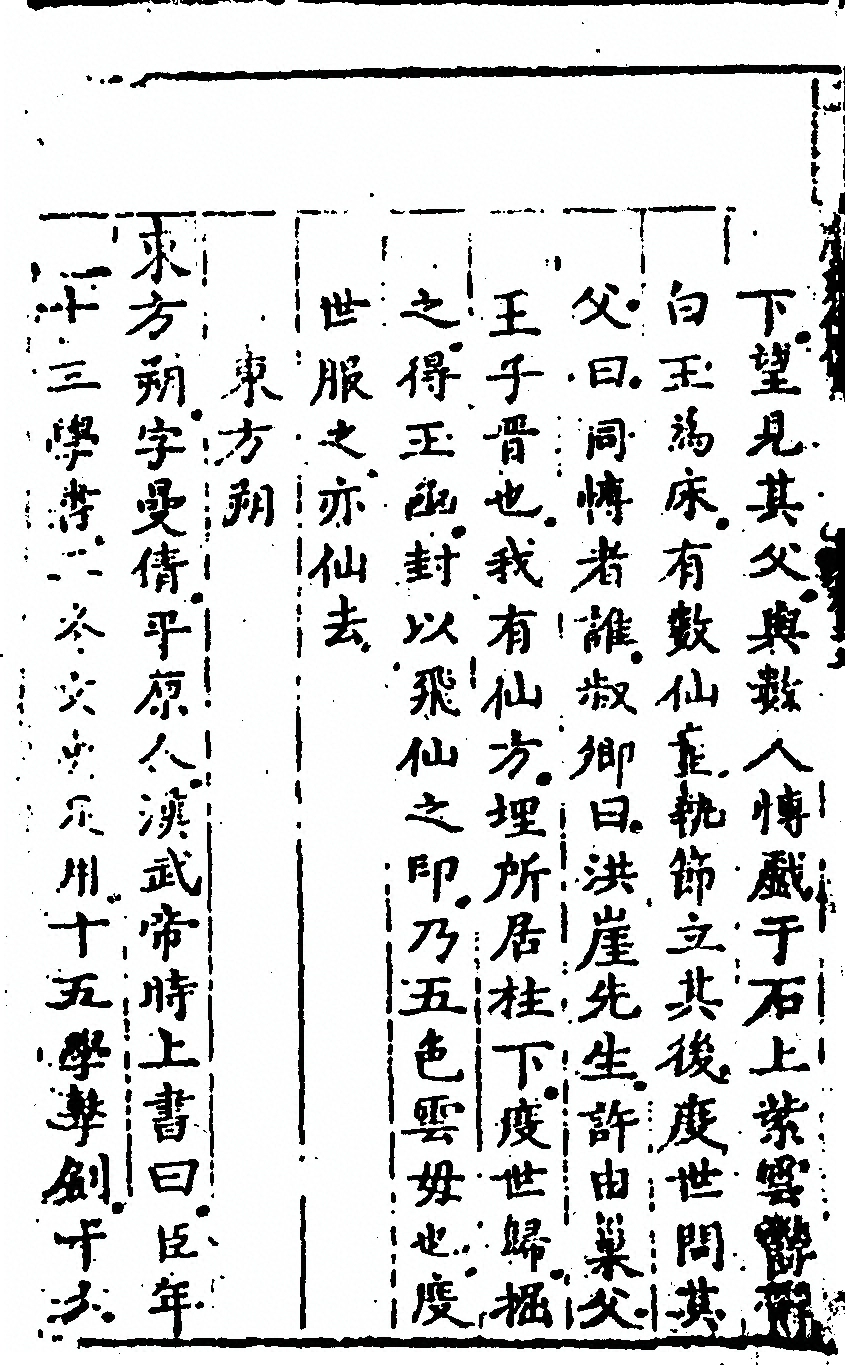 下望見其父與數人博戲于石上紫雲鬱鬱
白玉為床有數仙童執節立其後度世問其
父曰同博者誰叔卿曰洪崖先生許由巢父
王子晋也我有仙方埋所居柱下度世歸掘
之得玉函封以飛仙之印乃五色雲母也度
世服之亦仙去
東方朔
東方朔字曼倩平原人漢武帝時上書曰臣年
十三學書三冬文史足用十五學擊劍十六